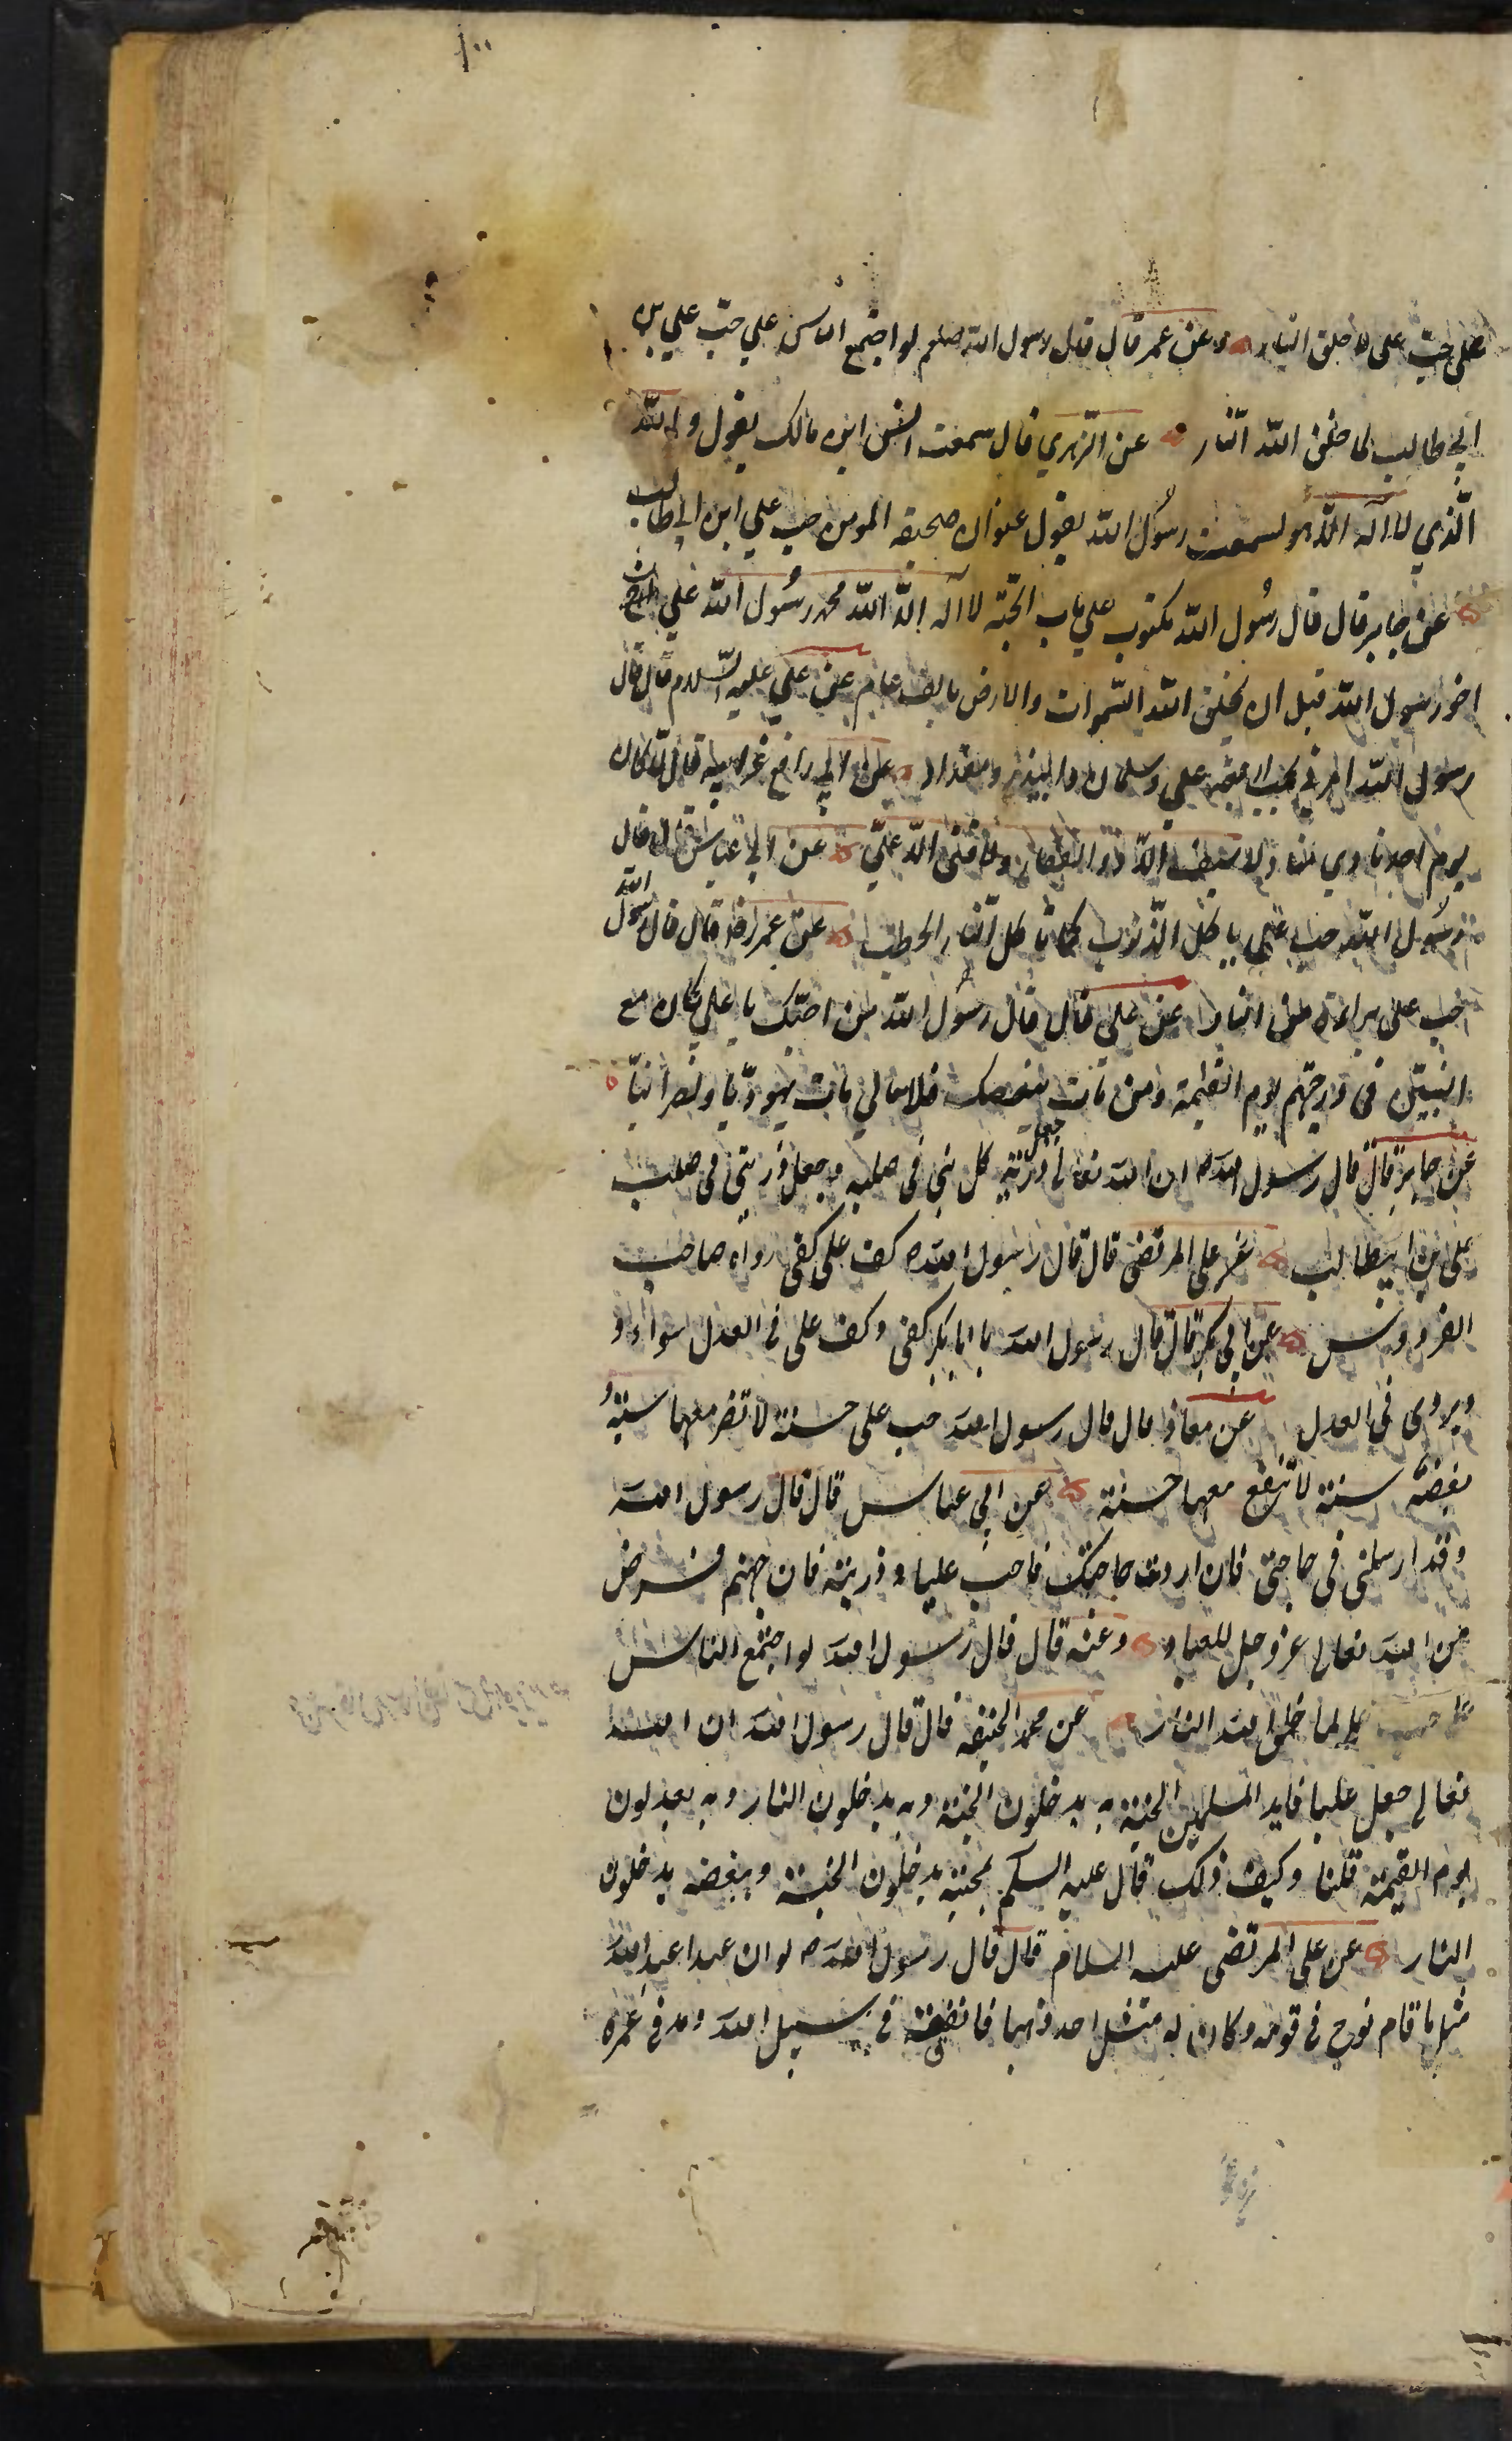 ١٠٠
على حبّ على لا خلق النار وعن عمر قال قال رسول الله صلعم لو اجتمع الناس علي حبّ علي بن
ابي طالب لما خلق الله النار عن الزهري قال سمعت انس ابن مالك يقول والله
الّذي لا اله الّا هو لسمعت رسُول الله يقول عنوان صحيفه المومن حب علي ابن ابي طالب
عن جابر قال قال رسُول الله مكتوب علي باب الجنّة لا اله الّا الله محمد رسُول الله علي
اخو رسول الله قبل ان يخلق الله السّموات والارض بالف عام عن علي عليه السّلام قال قال
رسول الله امرني بحب اربعة علي وسلمان وابيذر ومقداد عن ابي رافع قال كان
يوم احد نادي مناد لا سيف الّا ذو الفقار ولا فتى الّا عليّ عن ابي عباس قال قال
رسُول الله حب علي ياكل الذّنوب كما تاكل النار الحطب عن عمر قال قال رسول الله
حب على براءة من النار عن علي قال قال رسُول الله من احبّك يا علي كان مع
النبيّين في درجتهم يوم القيمة ومن مات ببغضك فلا يبالي مات يهوديّا او نصرانيّا
عن جابر قال قال رسول الله ان الله تعالى جعل ذرّية كل نبي في صلبه وجعل ذريتي في صلب
على بن ابيطالب عن على المرتضى قال قال رسول الله كف على كفى رواه صاحب
الفردوس عن ابي بكر قال قال رسول الله يا ابا بكر كفى وكف على في العدل سواء و
ويروى في العدل عن معاذ قال قال رسول الله حب على حسنة لا تضر معها سيئة و
بغضه سيئة لا تنفع معها حسنة عن ابي عباس قال قال رسول الله
وقد ارسلنى في حاجتى فان اردت حاجتك فاحب عليا وذريته فان حبهم فرض
من الله تعالى عز وجل للعباد وعنه قال قال رسول الله لو اجتمع الناس
على حب على لما خلق الله النار عن محمد الحنيفه قال قال رسول الله ان الله
تعالى جعل عليا قايد المسلمين الى الجنة به يدخلون الجنة وبه يدخلون النار وبه يعدلون
يوم القيمة قلنا وكيف ذلك قال عليه السلم بحبته يدخلون الجنة وببغضه يدخلون
النار عن على المرتضى عليه السلام قال قال رسول الله لو ان عبدا عبد الله
مثل ما قام نوح في قومه وكان له مثل احد ذهبا فانفقه في سبيل الله ومد في عمره